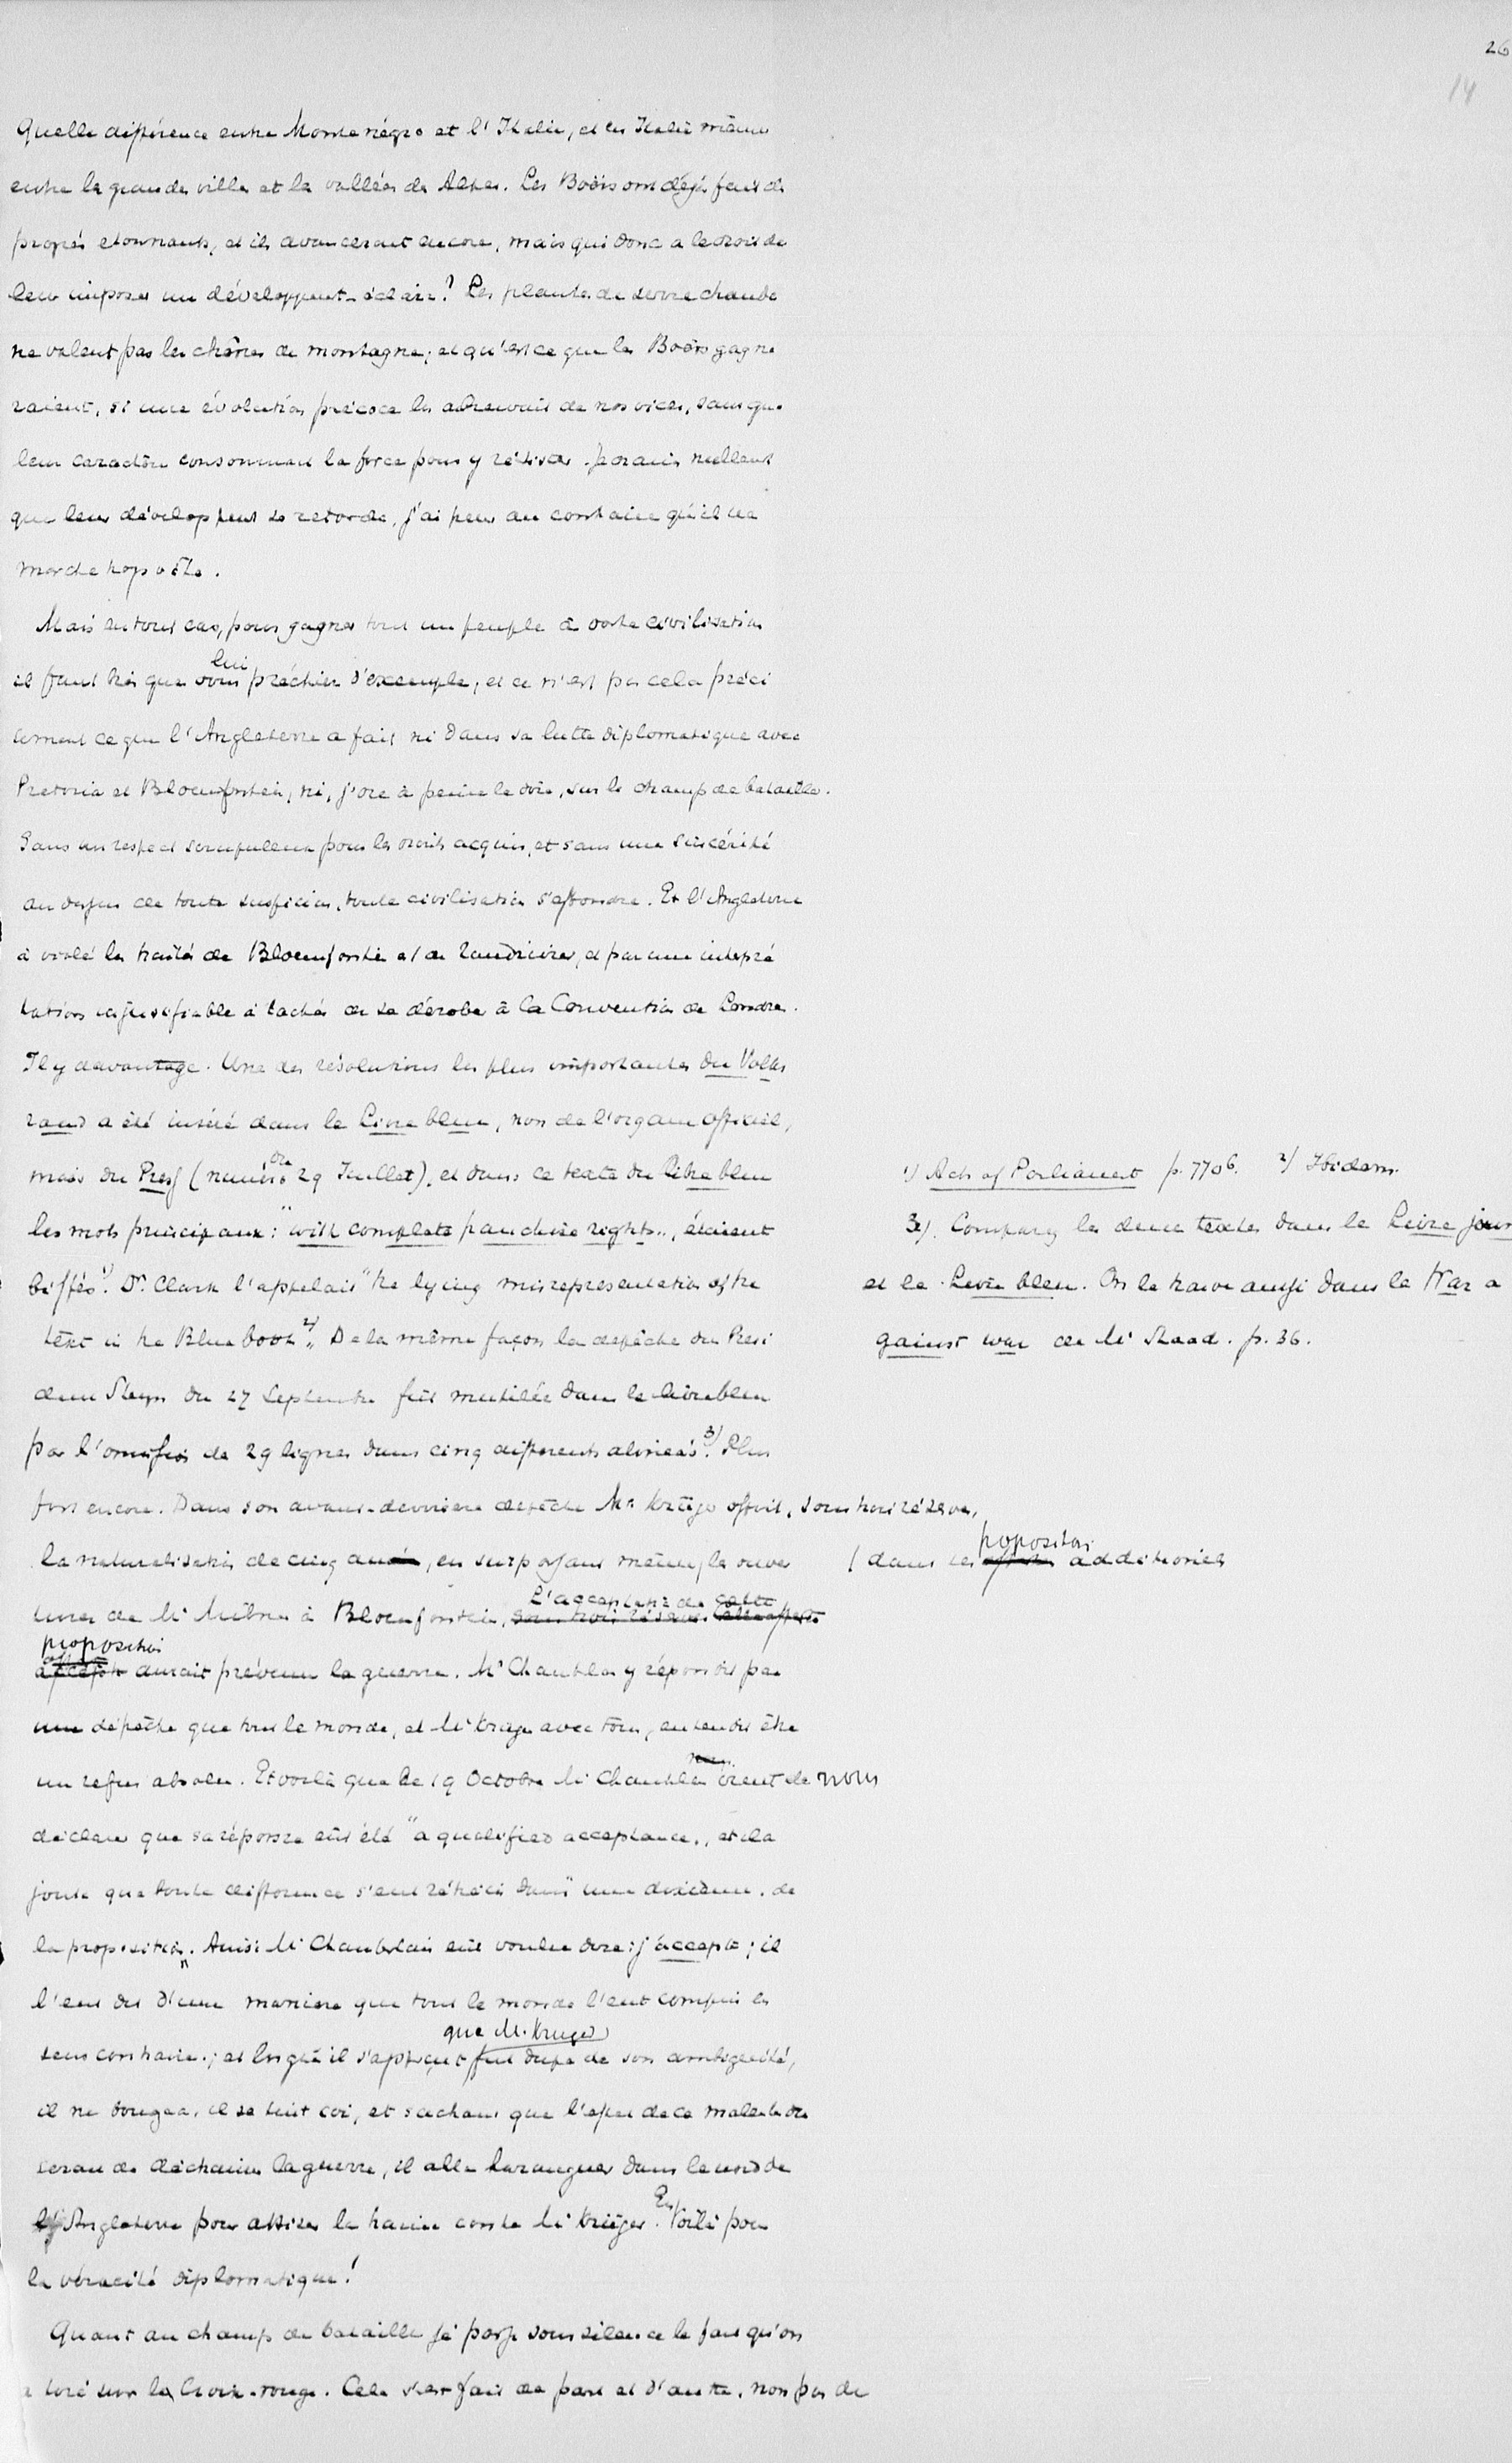 26
14
Quelle différence entre Montenégro et l'Italie, et en Italie même
entre la grande ville et la vallée des Alpes. Les Boërs ont déjà fait des
progrès etonnants, et ils avanceront encore, mais qui donc a le droit de
leur imposer un développent-éclair? Les plantes de serre chaude
ne valent pas les chênes de montagne; et qu'est ce que les Boërs gagne
raient, si une évolution précoce les abreuvait de nos vices, sans que
leur caractère consommat la force pour y résister. Je nullement
que leur développent se retarde, j'ai peur au contraire qu'il ne
marche trop vîte.
Mais en tout cas, pour gagner tout un peuple à votre civilisation
il faut que vous lui prêchiez d'exemple, et ce n'est pas cela préci
sement ce que l'Angleterre a fait ni dans sa lutte diplomatique avec
Pretoria et Bloemfontein, ni, j'ose à peine le dire, sur le champ de bataille.
Sans un respect scrupuleux pour les droits acquis, et sans une sincérité
au dessus de toute suspicion, toute civilisation s'effondre. Et l'Angleterre
a violé les traités de Bloemfontein et de Zandrivier, et par une interpré
tation injustifiable a tâché de se dérober à la Convention de Londres.
Il y davantage. Une des résolutions les plus importantes du Volks
raad a été inséré dans le Livre bleu, non de l'organe officiel,
mais du Press (numéro du 29 Juillet), et dans ce texte du livre bleu
les mots principaux: "with complete franchise rights", étaient
biffés 1). Dr. Clark l'appelait "the lying misrepresentation of the
text in the Blue book" 2). De la même façon la depêche du Presi
dent Steyn du 27 Septembre fut mutilée dans le livre bleu
par l'omission de 29 lignes dans cinq differents alineás 3). Plus
fort encore. Dans son avant-dernière depêche Mr. Krüger offrit, sous trois réserves,
la naturalisation de cinq ans, en surpassant même, les ouver
tures de Mr Milner à Bloemfontein, sans trois réserves. L'acceptation de cette
proposition aurait prévenu la guerre. Mr Chamberlain y répondit par
une dépêche que tout le monde, et Mr Kruger avec tous, entendit être
un refus absolu. Et voilà que le 19 Octobre Mr Chamberlain vient de nous
déclarer que sa réponse eût été "a qualified acceptance", et il a
joute que toute difference s'eut rétréci dans "une dixième de
la proposition". Ainsi Mr Chamberlain eût voulu dire: j'accepte; il
l'eut dit d'une maniere que tout le monde l'eut compris en
sens contraire; et lorsqu'il s'apperçut que M. Kruger fut dupe de son ambiguité,
il ne bougea, il se tint coi, et sachant que l'effet de ce malentendu
serait de déchainer la guerre, il alla haranguer dans le nord de
l'Angleterre pour attiser la haine contre Mr Krüger. Et voilà pour
la véracité diplomatique!
Quant au champ de bataille je passe sous silence le fait qu'on
a tiré sur la Croix-rouge. Cela s'est fait de part et d'autre, non pas de
1) Acts of Parliament p. 7706. 2) Ibidem.
3). Comparez les deux textes dans le Livre jaune
et le Livre bleu. On le trouve aussi dans le War a
gainst war de Mr Stead. p. 36.
/ dans les propositions additionels